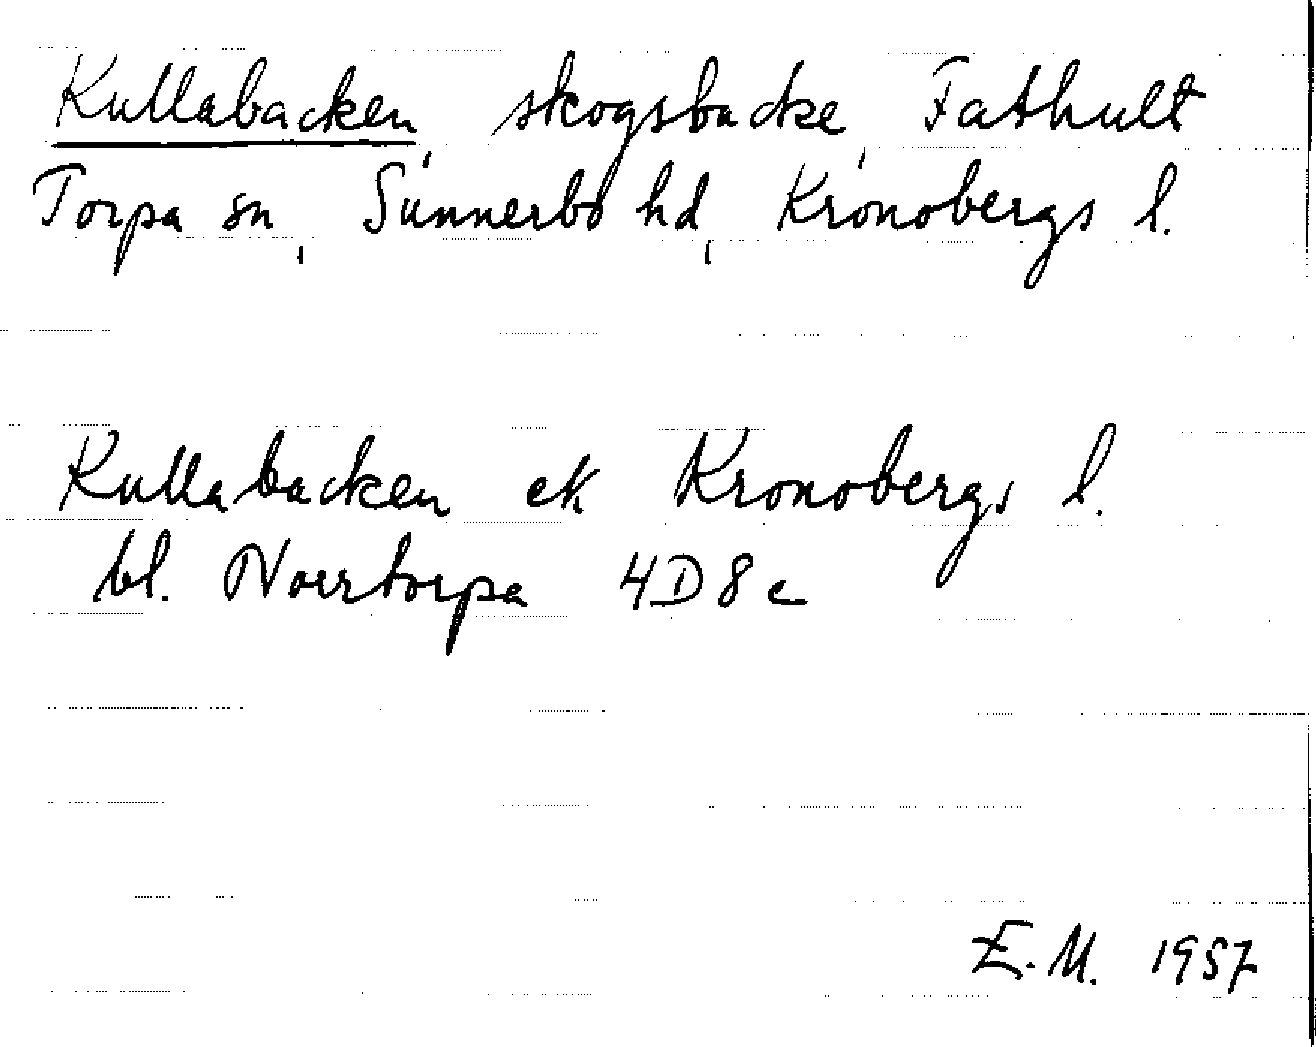 Kullabacken, skogsbacke, Fathult
Torpa sn, Sunnerbo hd, Kronobergs l.
Kullabacken ek Kronobergs l.
bl. Norrtorpa 4D8c
E.M. 1957